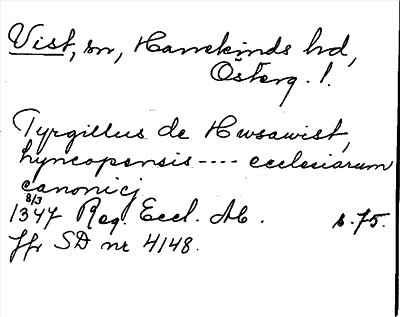 Vist, sn, Hanekinds hd,
Österg. l.
Tyrgillus de Hwsawist,
lyncopensis ---- ecclesiarum
canonicj
8/3
1347 Reg. Eccl. Ab. s. 75.
Jfr SD nr 4148.